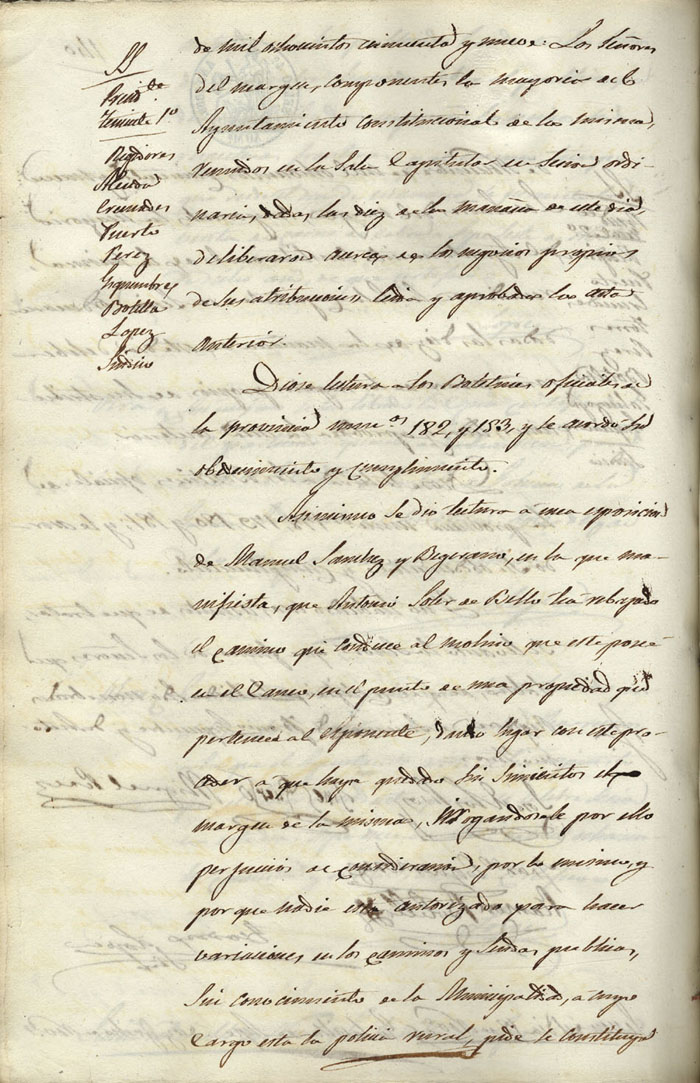 SS
Presid.te
Teniente 1º
Regidores
Cremades
Puerto
Perez
Botella
Lopez
Sindico
de mil ochocientos cincuenta y nueve: Los Señores
del margen, componentes la mayoria del
Ayuntamiento Constitucional de la misma,
reunidos en la Sala Capitular en Sesion ordi-
naria, dadas las diez de la mañana de este dia,
deliberaron acerca de los negocios propios
de sus atribuciones leida y aprobada la acta
anterior.
Diose lectura a los Boletines oficiales de
la provincia num.os 182, y 183, y se acordo su
obedecimiento y cumplimiento.
Asimismo se dio lectura a una esposicion
de Manuel Sanchez y Bejerano, en la que ma-
nifiesta, que Antonio Soler de Bello ha rebajado
el camino que conduce al molino que este posee
en el en el punto de una propiedad que
pertenece al esponente, dando lugar con este pro-
ceder a que haya quedado sin simientos el
margen de la misma, irrogandosele por ello
perjuicios de consideracion, por lo mismo, y
por que nadie esta autorizado para hacer
variaciones en los caminos y sendas publicas,
sin conocimiento de la Municipalidad, a cuyo
cargo esta la policia rural, pide se constituya